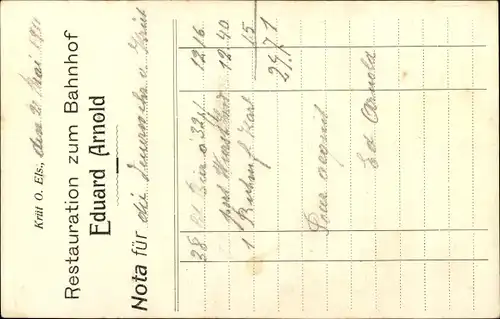 Krüt O. Els., den 21 Mai 191
Restauration zum Bahnhof
Eduard Arnold
Nota für die Feuerwehr v. Krüt
38 Bier à 32 12 16
Wurst und 12.40
1 15
24.71
Pour acquit
Ed Arnold